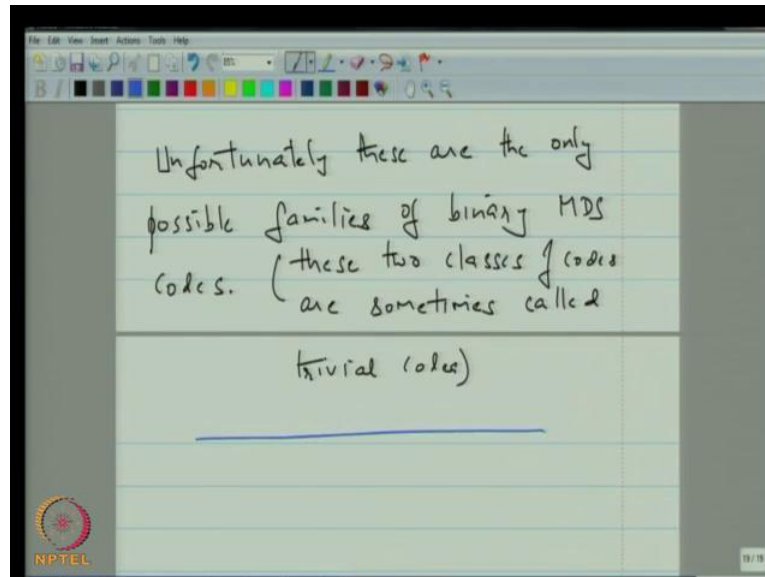 File Edit View Insert Actions Tools Help
85%
B I
Unfortunately these are the only
possible families of binary MDS
codes. (these two classes of codes
are sometimes called
trivial codes)
NPTEL
19/19